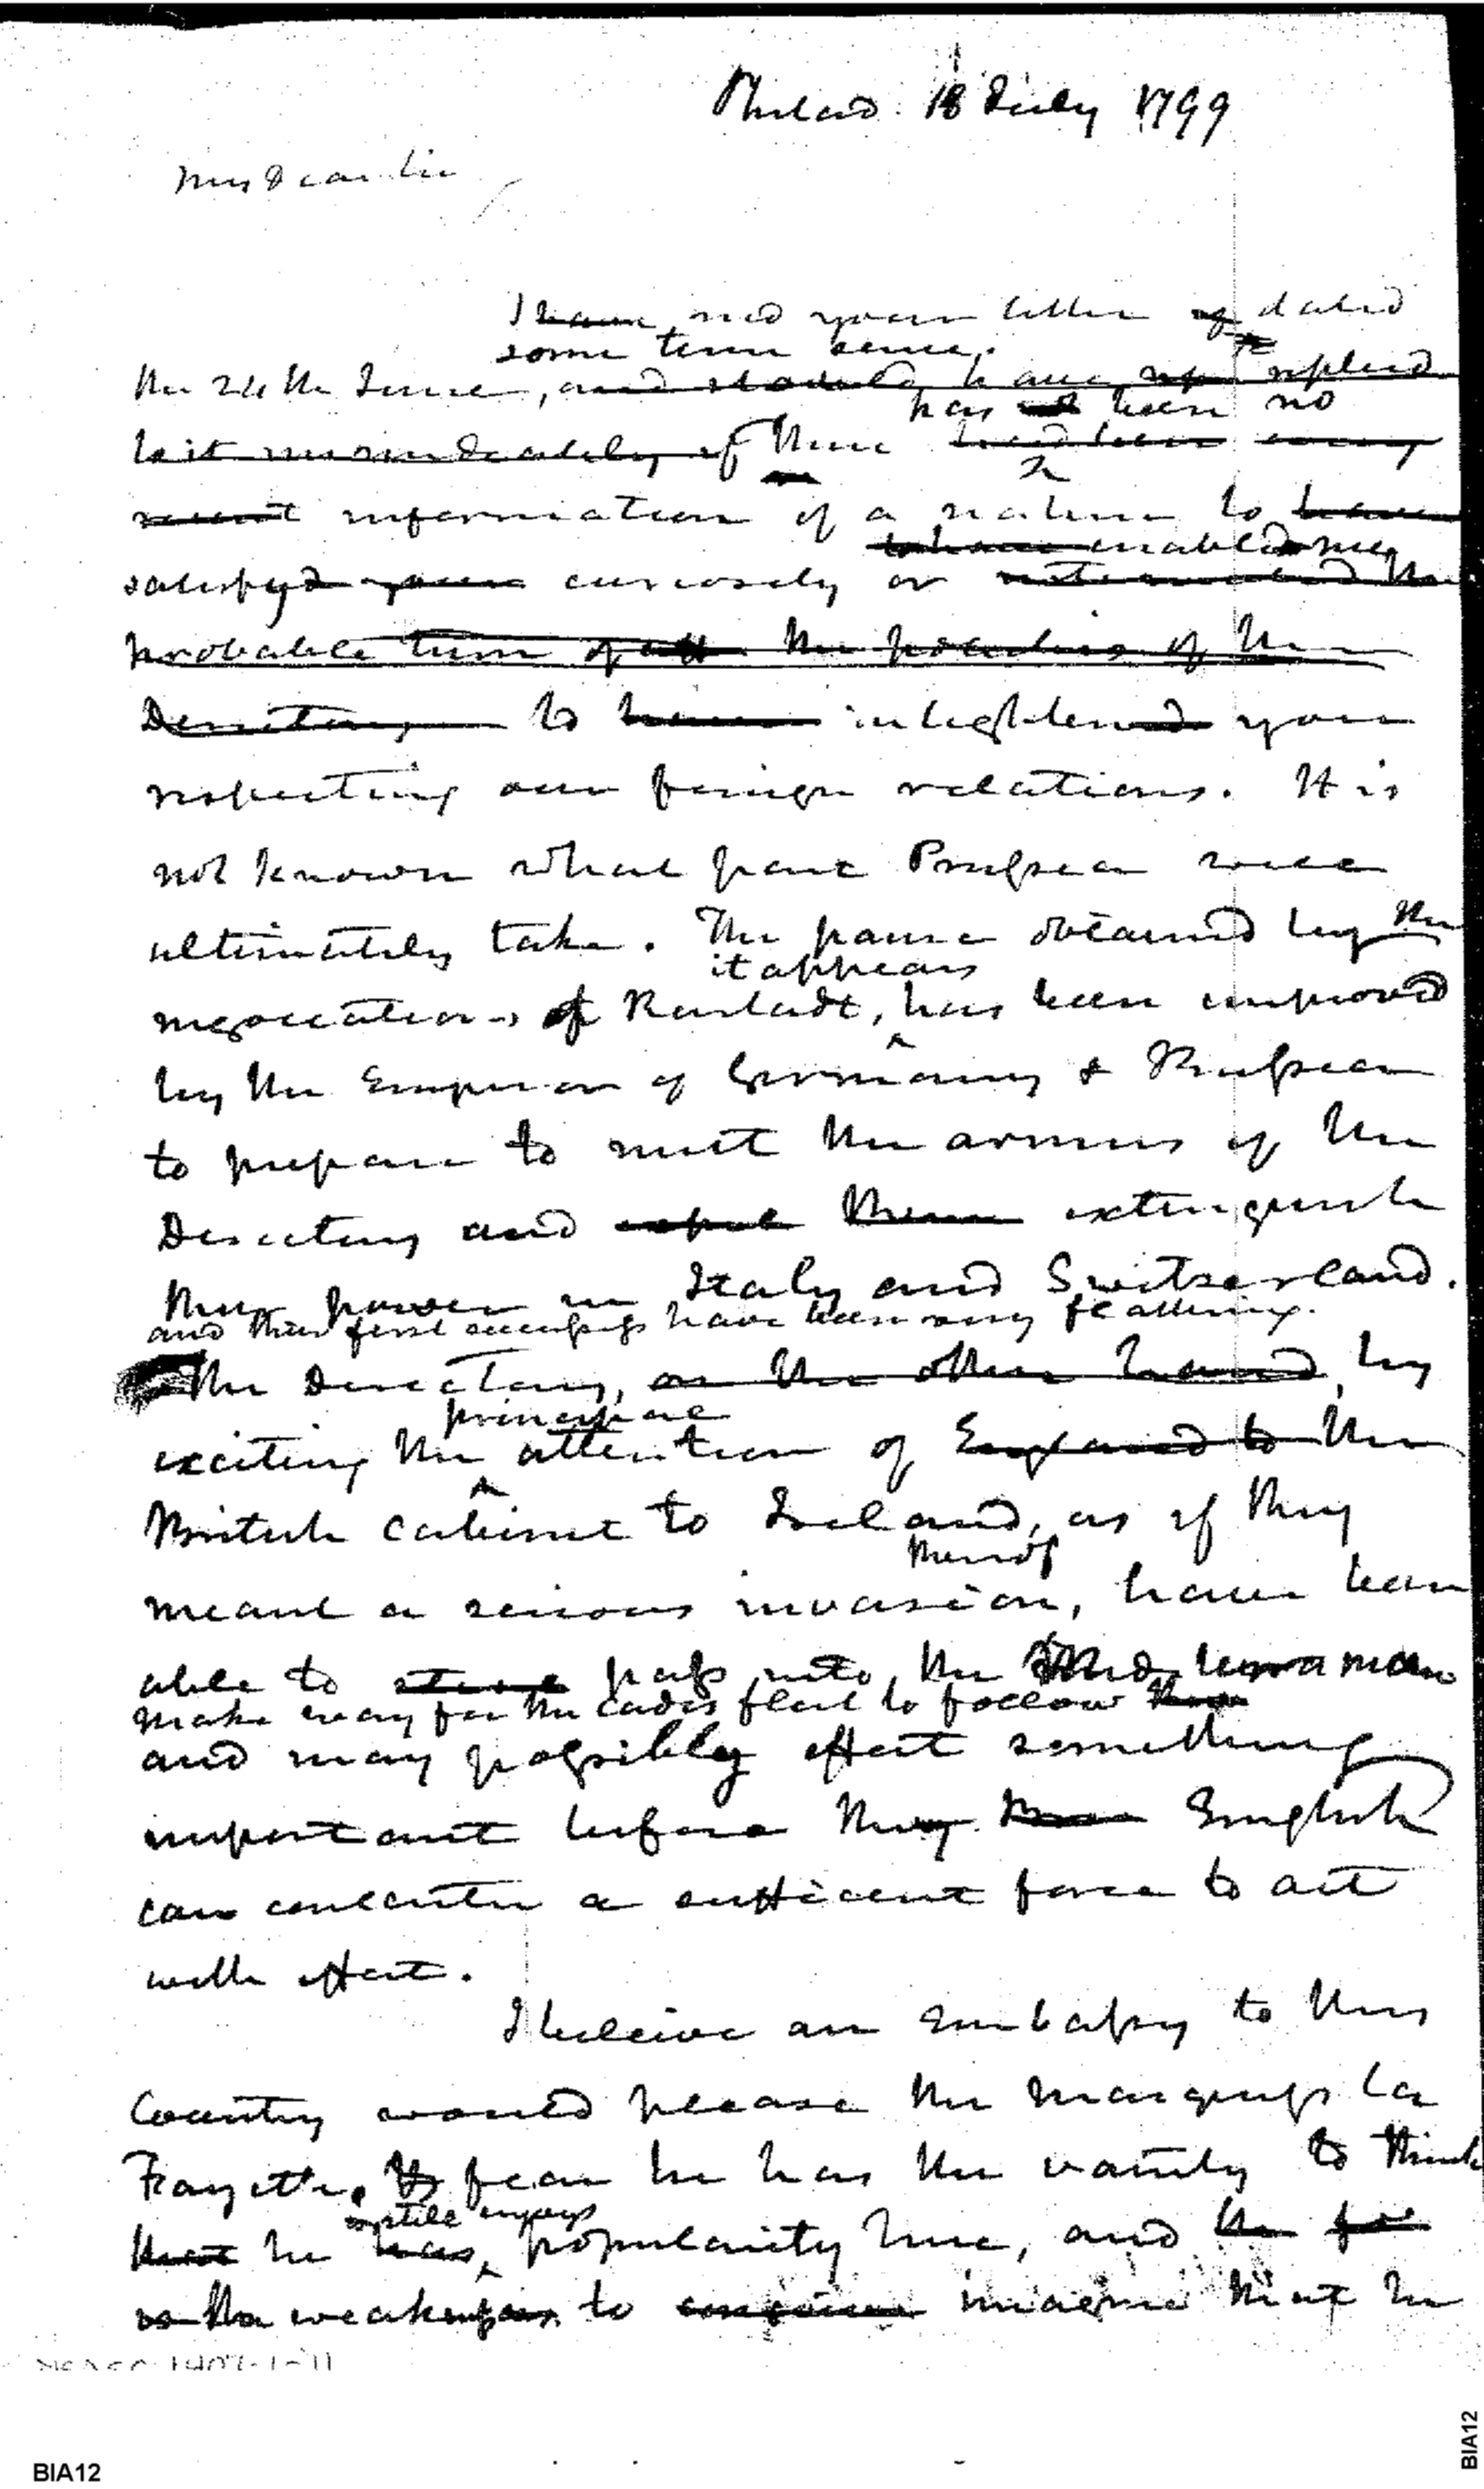 Philad. 18 July 1799
My Dear Sir
I have recd your letter of dated
some time since.
the 24th June, and should have replied
has not been no
to it immediately if there had been any
recent information of a nature to have
to have enabled me
satisfyd your curiosity or the
probable turn of the politics of the
Directory to have inlightened you
respecting our foreign relations. It is
not known what part Prussia will
ultimately take. The pause obtained by the
it appears
negociations of Rastadt, has been improved
by the Emperor of Germany & Russia
to prepare to meet the armies of the
Directory and expel them extinguish
their power in Italy and Switzerland.
and their first successes have been very flattering.
The Directory, on the other hand, by
principal
exciting the attention of England to the
British cabinet to Ireland, as if they
thereof
meant a serious invasion, have been
able to pass into the Mediterranean
make way for the Cadis fleet to follow them
and may possibly effect something
important before they the English
can concenter a sufficient force to act
with effect.
I believe an embassy to this
Country would please the Marquess La
Fayette. I fear he has the vanity to think
still enjoys
that he has popularity here, and the
is the weakness to conceive imagine that he
BIA12
BIA12